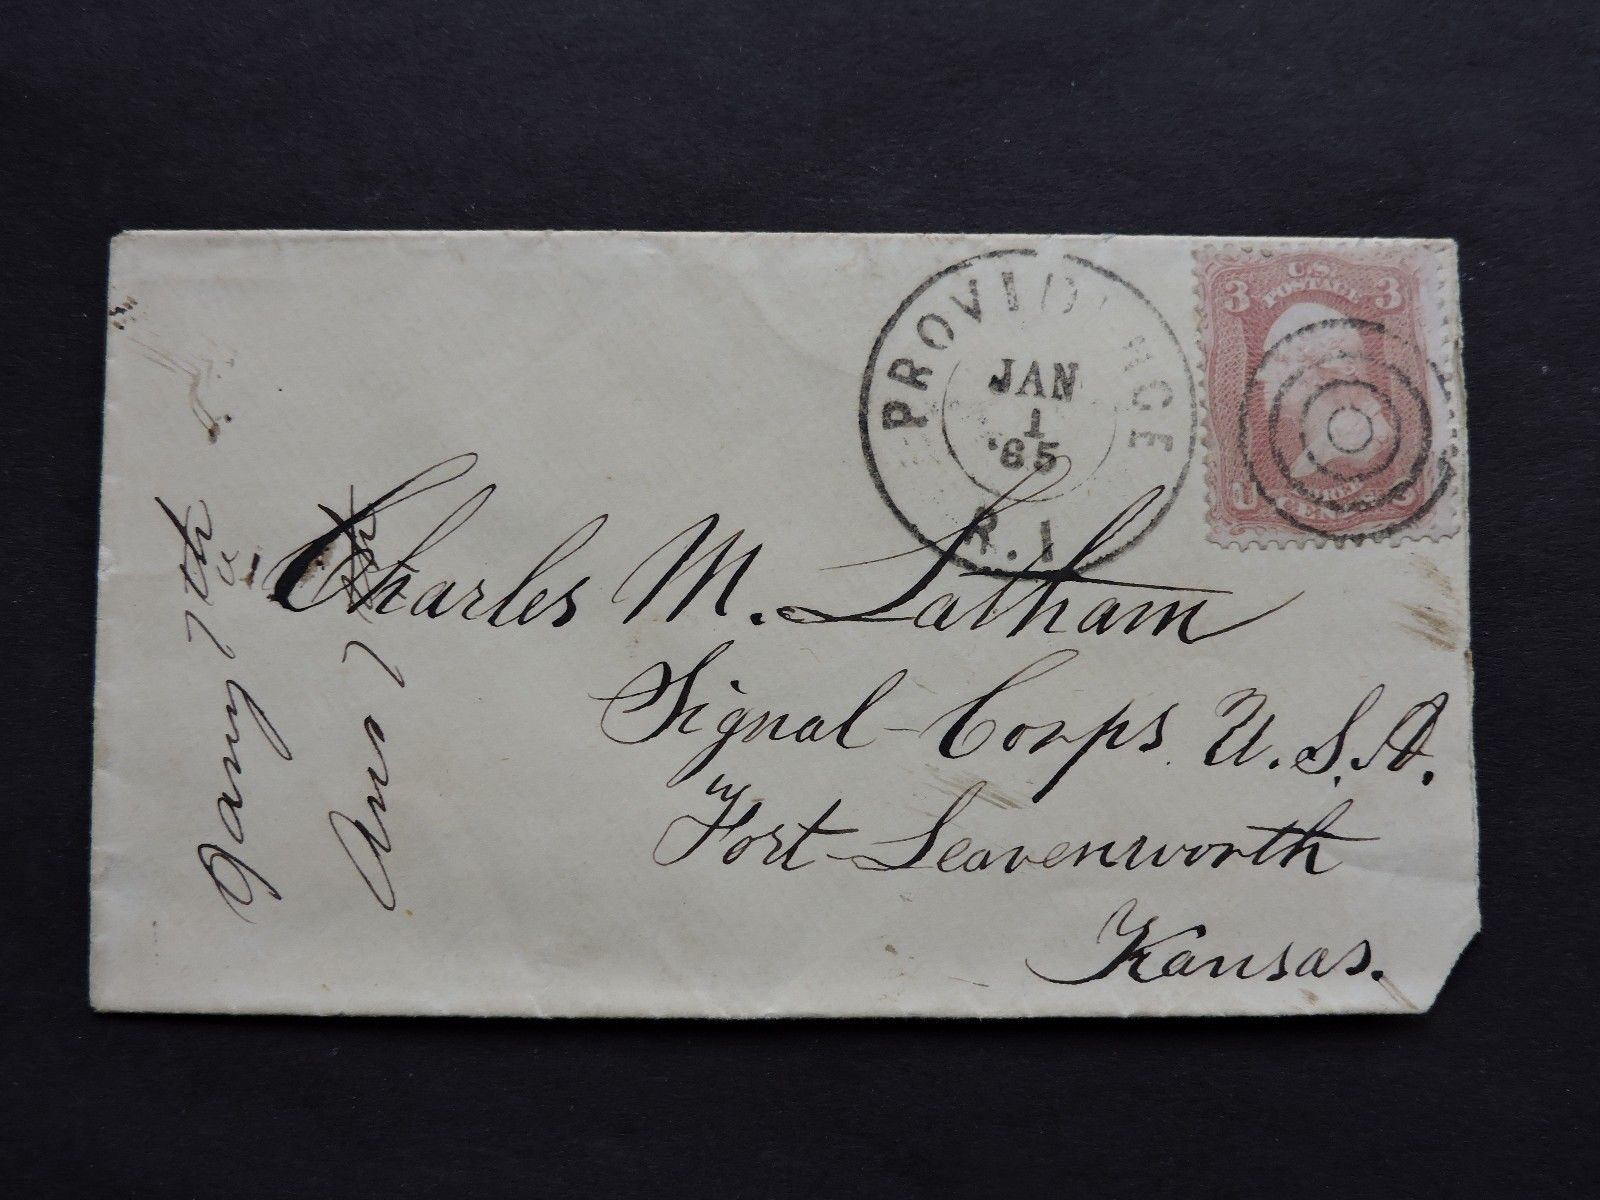 PROVIDENCE
JAN
1
'65
R.I
U.S.
POSTAGE
3 3
U
CENTS
Charles M. Latham
Signal Corps U.S.A.
Fort Leavenworth
Kansas.
Jany 7th
Ans 7th